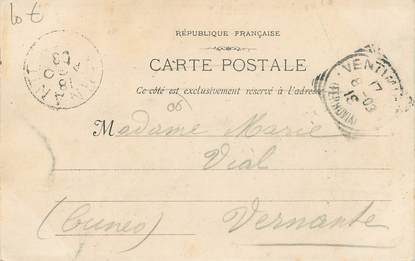 RÉPUBLIQUE FRANÇAISE
CARTE POSTALE
Ce côté est exclusivement réservé à l'adresse
Madame Marie
Vial
(Cuneo) Vernante
VENTIMI
(06)